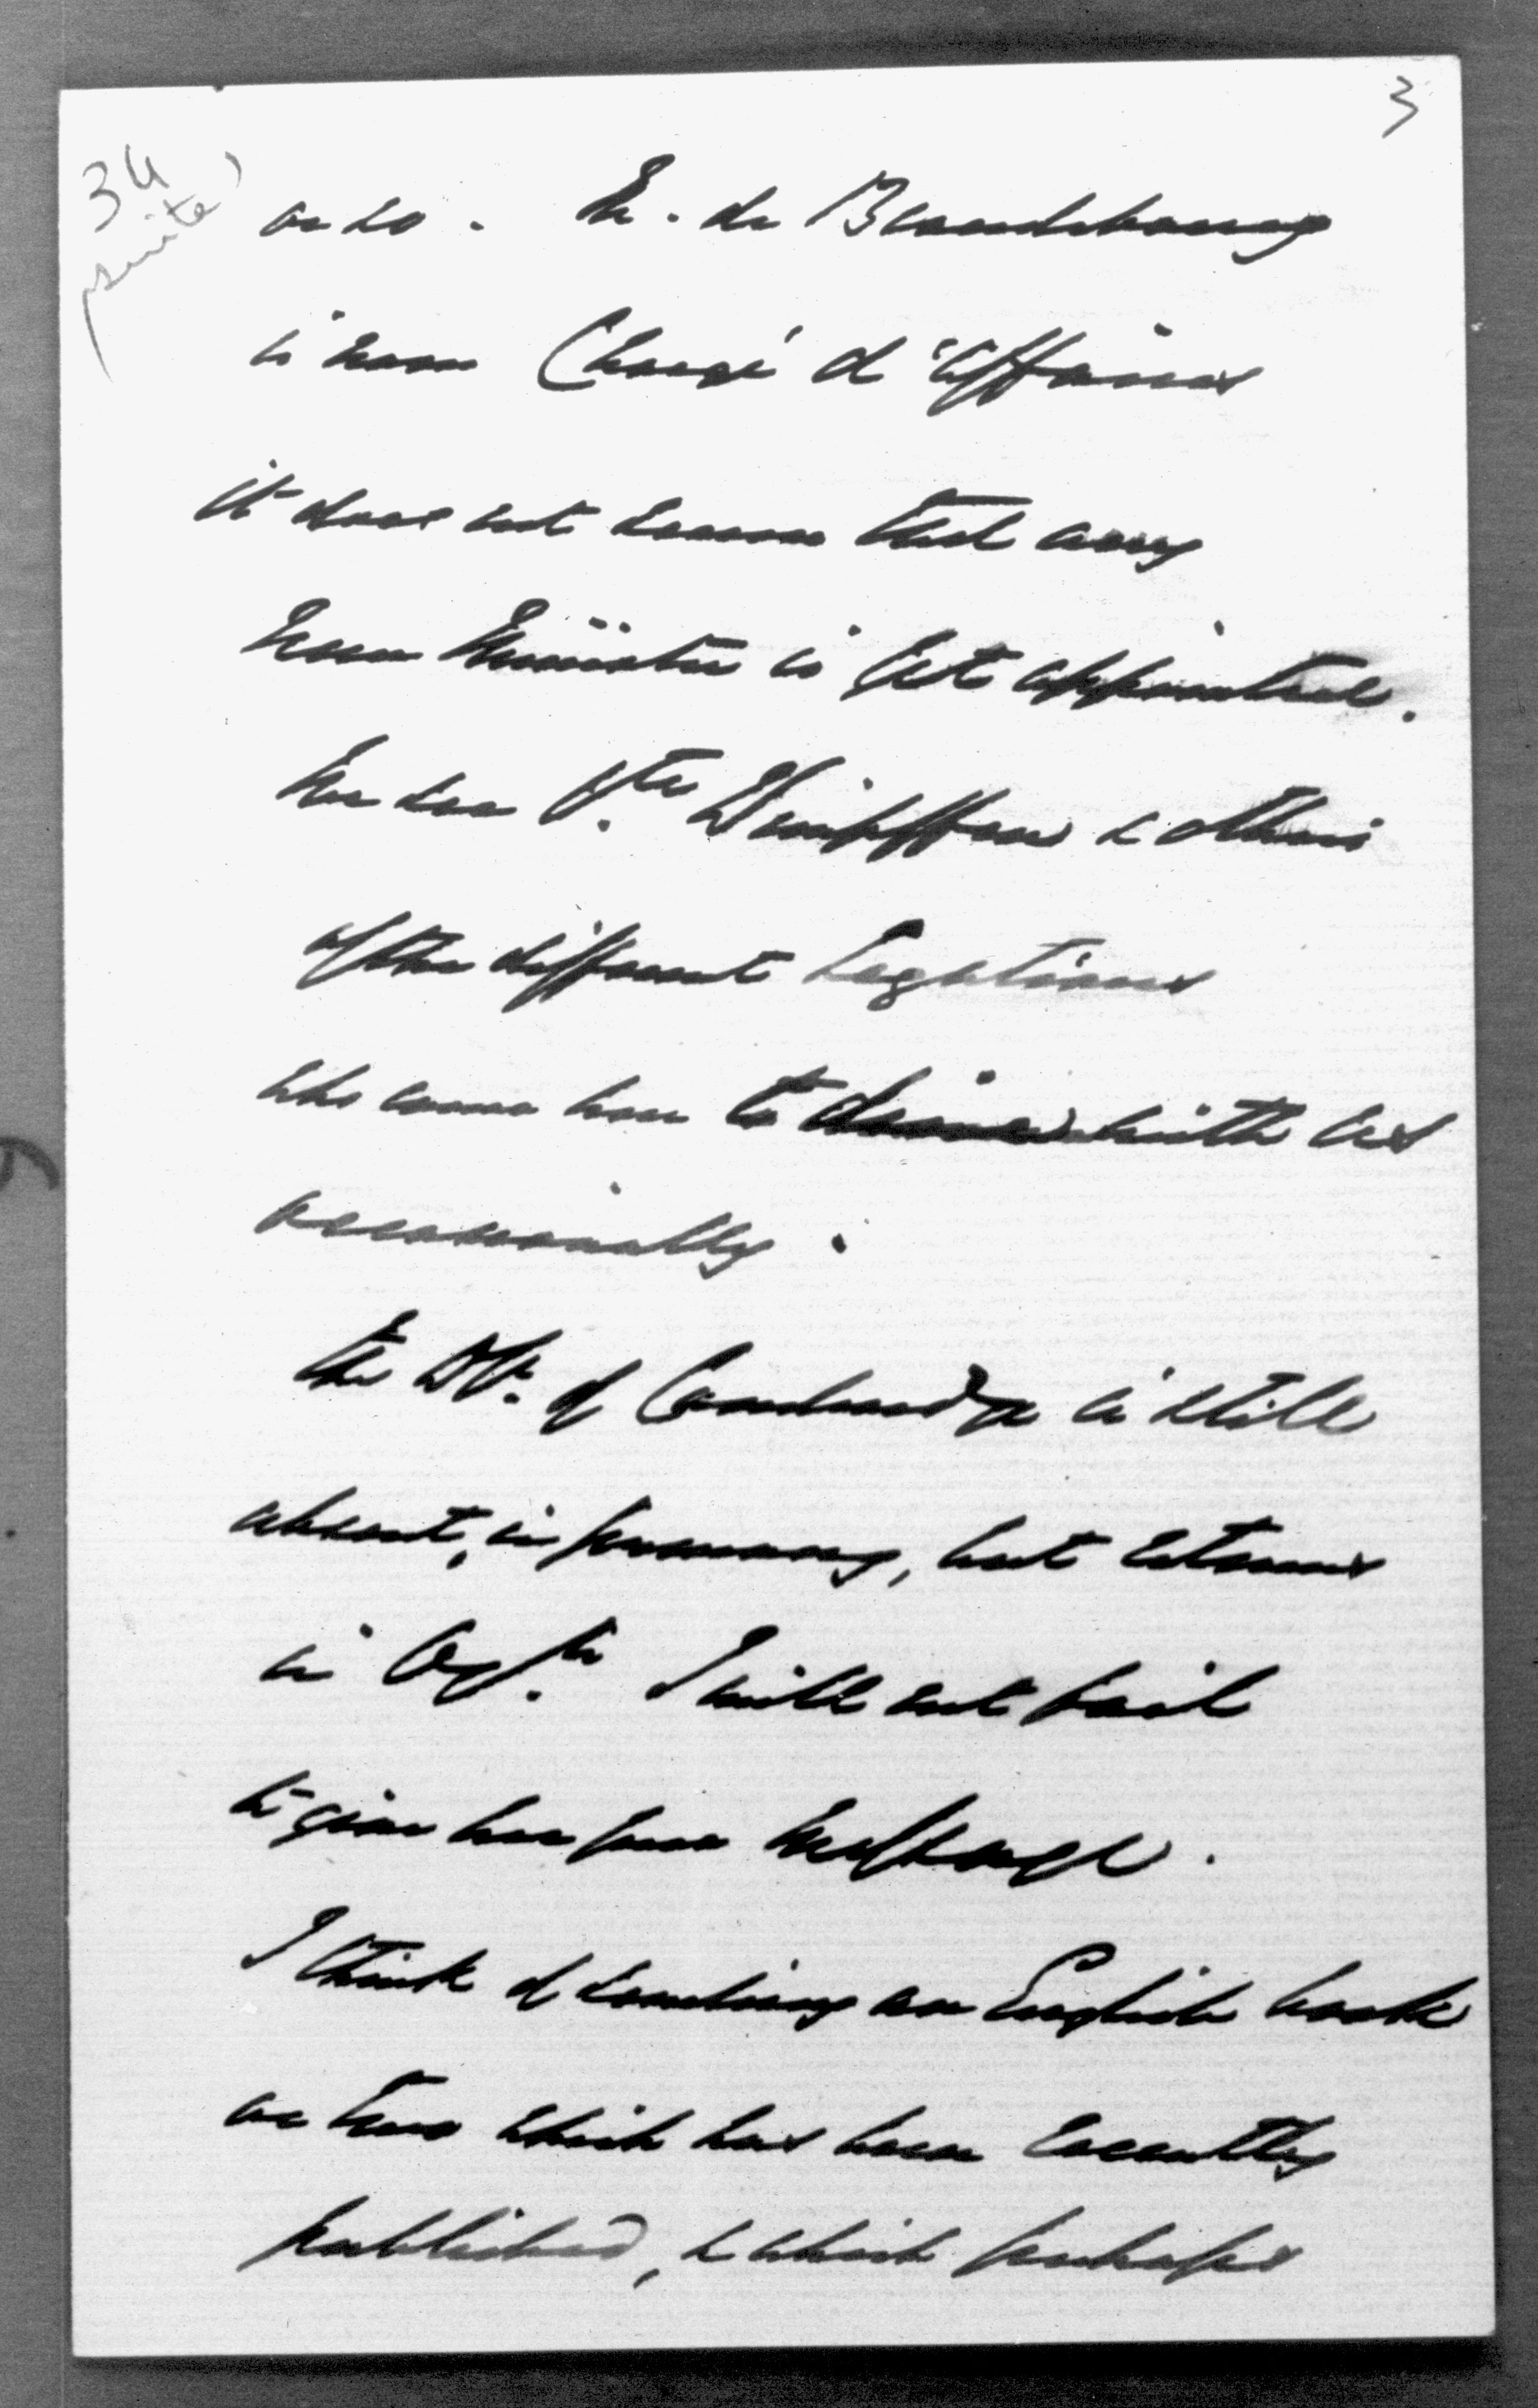 3
34
(suite)
or so. M. de Brandebourg
is now Chargé d'Affaires
it does not seem that any
new Minister is yet appointed.
We see Vte Wimpffen & others
of the different Legations
who come here to dinner with us
occasionally.
the Dss. of Cambridge is still
absent, in Germany, but returns
in I will not fail
to give her your message.
I think of sending an English book
or two which has been recently
published, & which perhaps